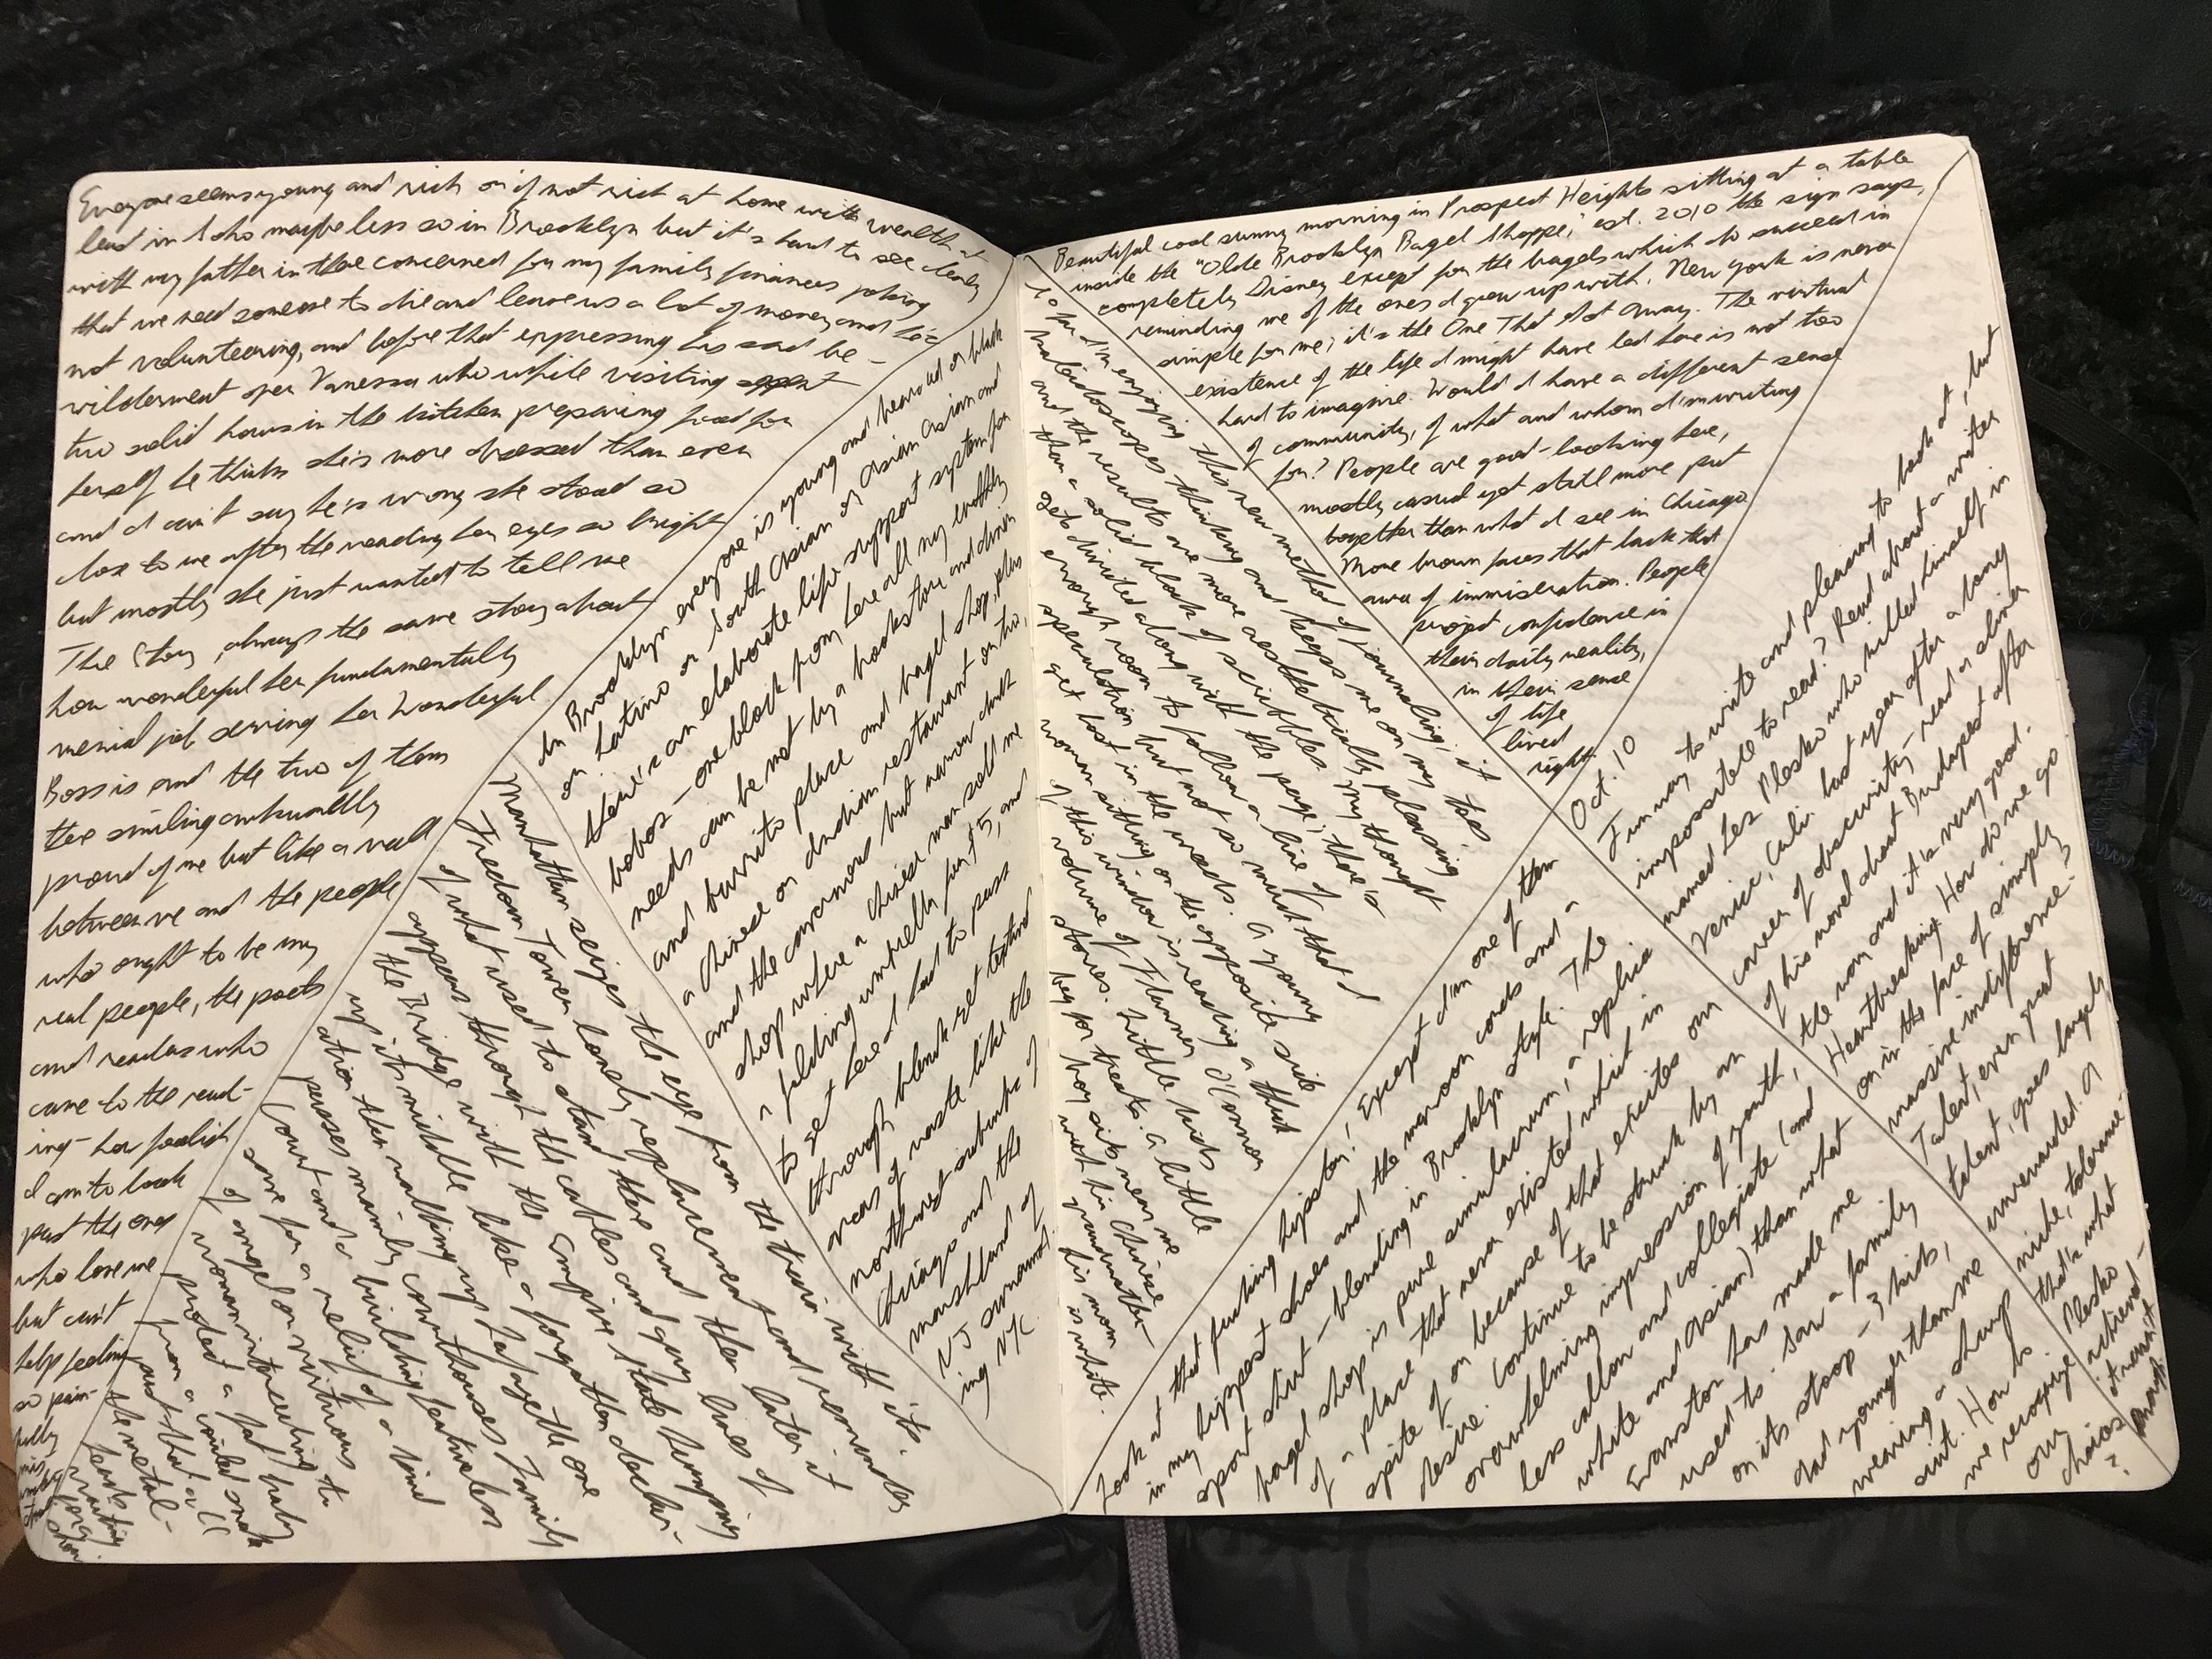 Everyone seems young and rich or if not rich at home with wealth at
least in Soho maybe less so in Brooklyn but it's hard to see clearly
with my father in there concerned for my family finances joking
that we need someone to die and leave us a lot of money and he's
not volunteering, and before that expressing his sad be-
wilderment over Vanessa who while visiting spent
two solid hours in the kitchen preparing food for
herself he thinks she's more obsessed than ever
and I can't say he's wrong she stood so
close to me after the reading her eyes so bright
but mostly she just wanted to tell me
The Story, always the same story about
how wonderful her fundamentally
menial job serving her Wonderful
Boss is and the two of them
there smiling awkwardly
proud of me but like a wall
between me and the people
who ought to be my
real people, the poets
and readers who
came to the read-
ing—how foolish
I am to look
past the ones
who love me
but can't
help feeling
so pain-
fully
In Brooklyn everyone is young and bearded or black
or Latino or South Asian or Asian Asian and
there's an elaborate life support system for
bobos—one block from here all my earthly
needs can be met by a bookstore and diner
and burrito place and bagel shop, plus
a Chinese or Indian restaurant or two,
and the cavernous but narrow junk
shop where a Chinese man sold me
a folding umbrella for $5, and
to get here I had to pass
through bleak yet textured
areas of waste like the
northwest suburbs of
Chicago and the
marshland of
NJ surround-
ing NYC.
Manhattan seizes the eye from the train with its
Freedom Tower lonely replacement and remembers
of what used to stand there and then later it
appears through the cables and gray lines of
the Bridge with the Empire State bumping
up its middle like a forgotten decla-
ation then walking up Lafayette one
passes mainly courthouses Family
Court and a building featureless
save for a relief of a kind
of angel or virtuous
woman interceding to
protect a fat baby
from a coiled snake
just that all
the metal-
Beautiful cool sunny morning in Prospect Heights sitting at a table
inside the "Olde Brooklyn Bagel Shoppe," est. 2010 the sign says,
completely Disney except for the bagels which do succeed in
reminding me of the ones I grew up with. New York is never
simple for me; it's the One That Got Away. The virtual
existence of the life I might have led here is not too
hard to imagine. Would I have a different sense
of community, of what and whom I'm writing
for? People are good-looking here,
mostly casual yet still more put
together than what I see in Chicago
More brown faces that lack that
aura of immiseration. People
project confidence in
their daily reality,
in their sense
of life
lived
right.
So far I'm enjoying this new method of journaling; it
kaleidoscopes thinking and keeps me on my toes
and the results are more aesthetically pleasing
than a solid block of scribbles. My thought
gets divided along with the page; there's
enough room to follow a line of
speculation but not so much that I
get lost in the weeds. A young
woman sitting on the opposite side
of this window is reading a thick
volume of Flannery O'Connor
stories. Little kids
beg for treats. A little
boy sits near me
with his Chinese
grandmother—
his mom
is white.
Look at that fucking hipster! Except I'm one of them
in my hippest shoes and the maroon cords and a
sport shirt—blending in Brooklyn style. The
bagel shop is pure simulacrum, a replica
of a place that never existed which in
spite of or because of that excites our
desire. Continue to be struck by an
overwhelming impression of youth,
less callow and collegiate (and
white and Asian) than what
Evanston has made me
used to. Saw a family
on its stoop—3 kids,
dad younger than me
wearing a sharp
suit. How do
we recognize
our
choices
?
Oct. 10
Funny to write and pleasing to look at, but
impossible to read? Read about a writer
named Les Plesko who killed himself in
Venice, Calif. last year after a long
career of obscurity—read a sliver
of his novel about Budapest after
the war and it's very good.
Heartbreaking. How do we go
on in the face of simply
massive indifference?
Talent, even great
talent, goes largely
unrewarded. A
niche, tolerance—
that's what
Plesko
achieved—
it wasn't
enough.